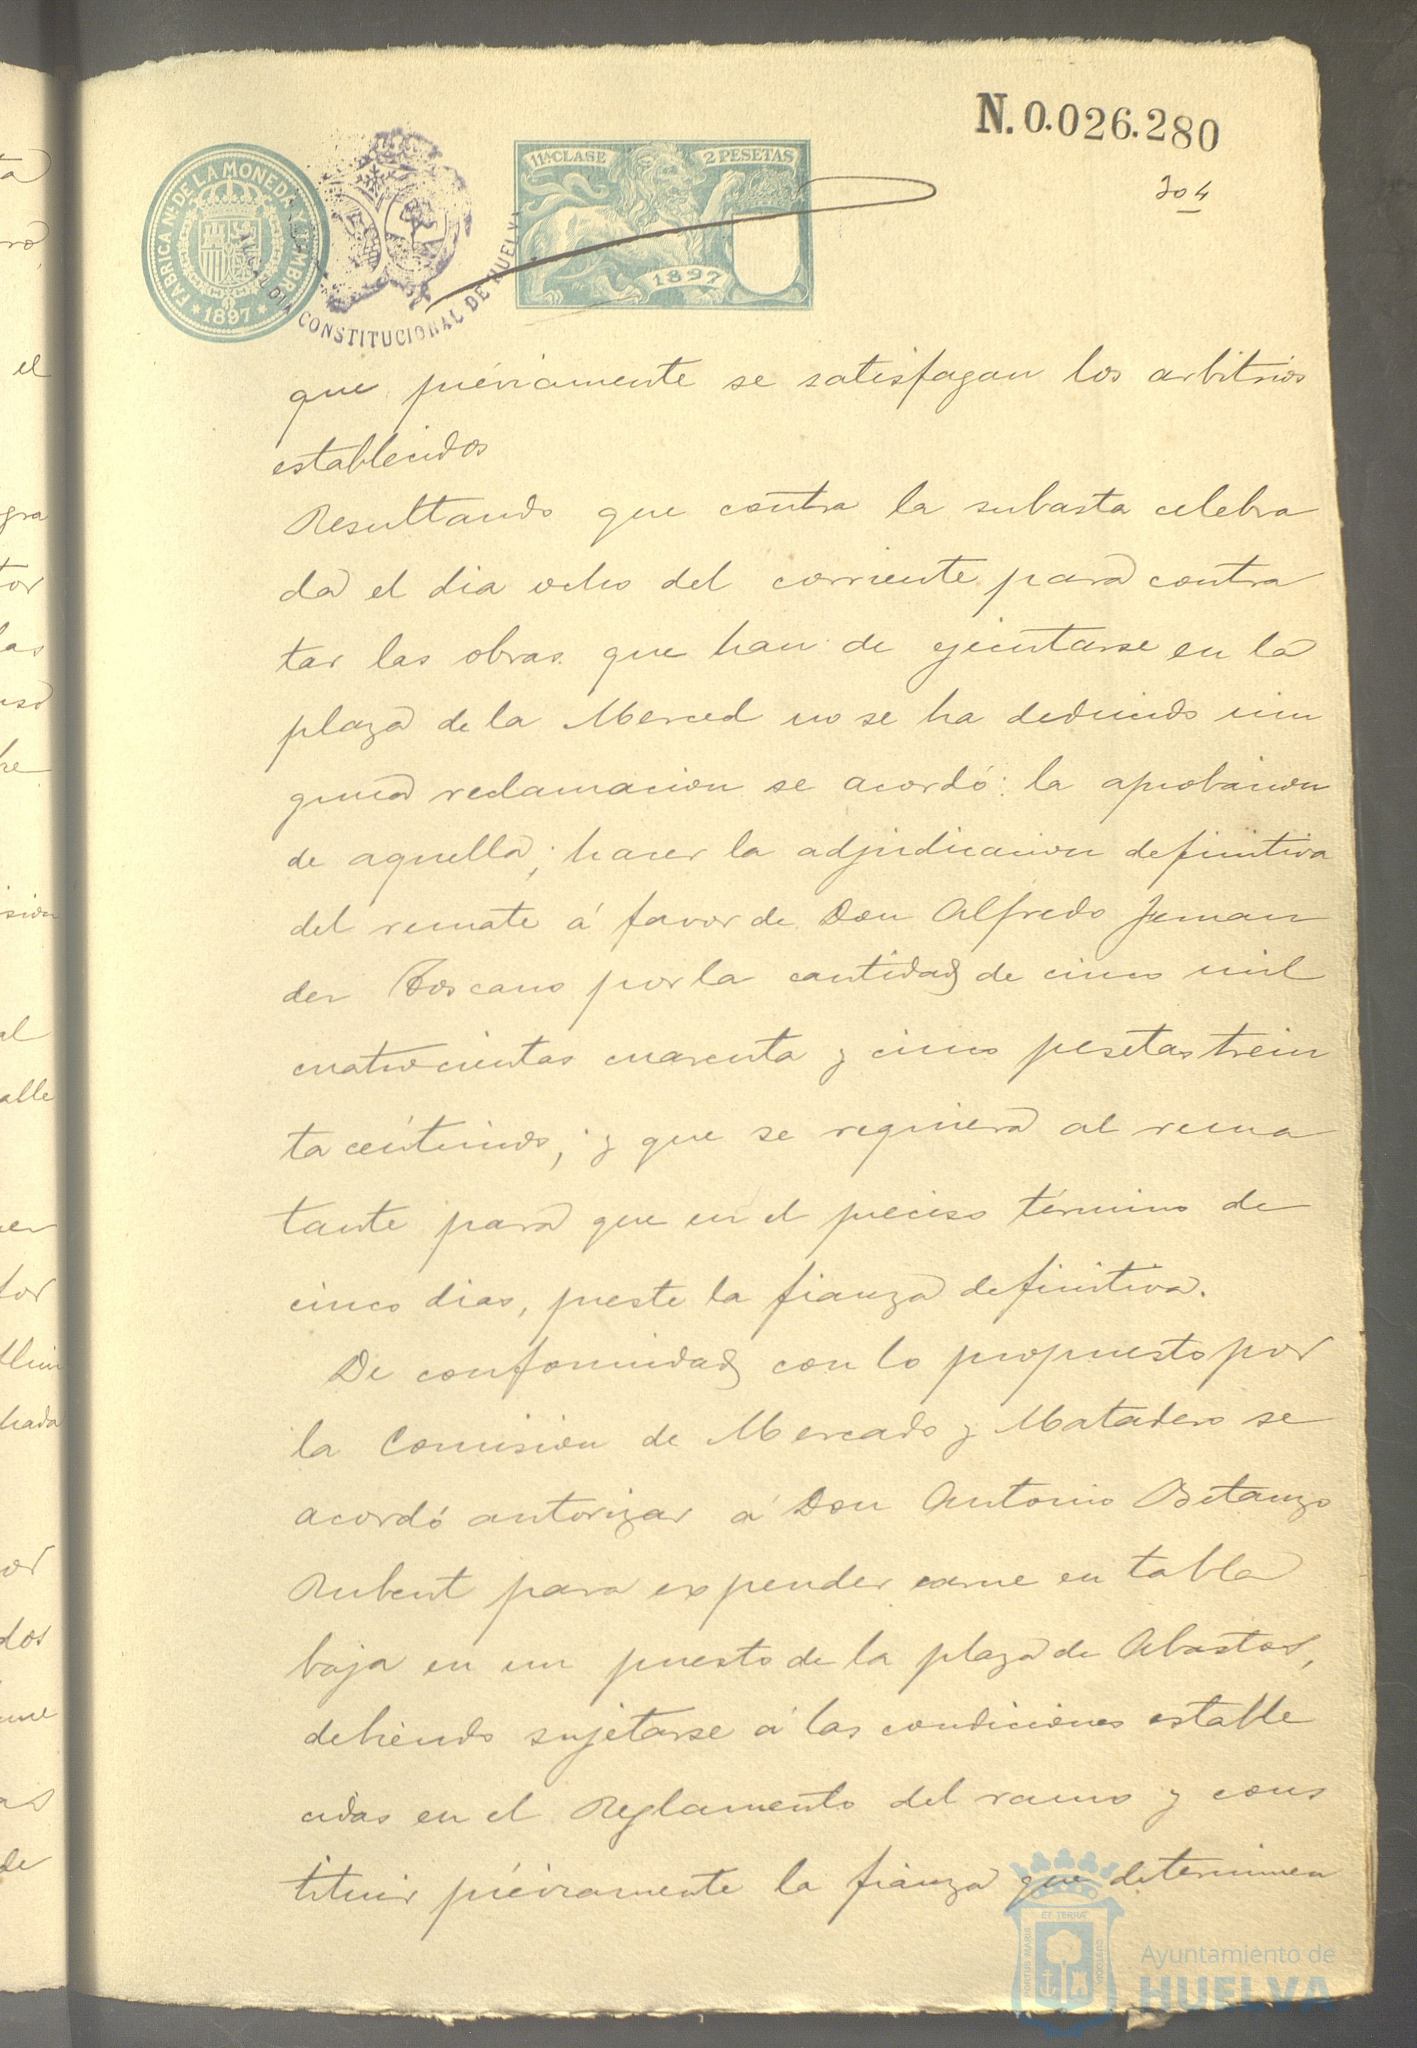 N. 0.026.280
304
FABRICA Nª. DE LA MONEDA Y TIMBRE
* 1897 *
ALCALDIA CONSTITUCIONAL DE HUELVA
11ª CLASE
2 PESETAS
1897
que préviamente se satisfagan los arbitrios
establecidos
Resultando que contra la subasta celebra
da el dia ocho del corriente para contra
tar las obras que han de ejecutarse en la
plaza de la Merced no se ha deducido nin
guna reclamacion se acordó: la aprobacion
de aquella; hacer la adjudicacion definitiva
del remate á favor de Don Alfredo Fernan
dez Toscano por la cantidad de cinco mil
cuatrocientas cuarenta y cinco pesetas trein
ta céntimos; y que se requiera al rema
tante para que en el preciso término de
cinco dias, preste la fianza definitiva.
De conformidad con lo propuesto por
la Comision de Mercado y Matadero se
acordó autorizar á Don Antonio Betanzo
para expender carne en tabla
baja en un puesto de la plaza de Abastos,
debiendo sujetarse á las condiciones estable
cidas en el Reglamento del ramo y cons
tituir préviamente la fianza que determinen
PORTUS MARIS
ET TERRÆ
CUSTODIA
Ayuntamiento de
HUELVA